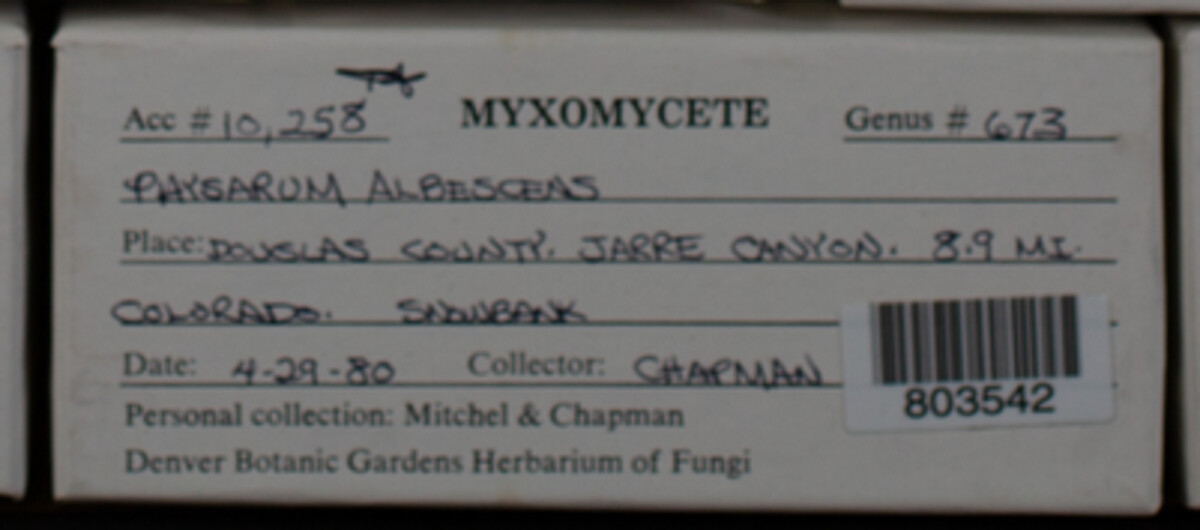 Acc # 10,258 MYXOMYCETE Genus # 673
PHYSARUM ALBESCENS
Place: DOUGLAS COUNTY. JARRE CANYON. 8.9 MI.
COLORADO. SNOWBANK
Date: 4-29-80 Collector: CHAPMAN
803542
Personal collection: Mitchel & Chapman
Denver Botanic Gardens Herbarium of Fungi